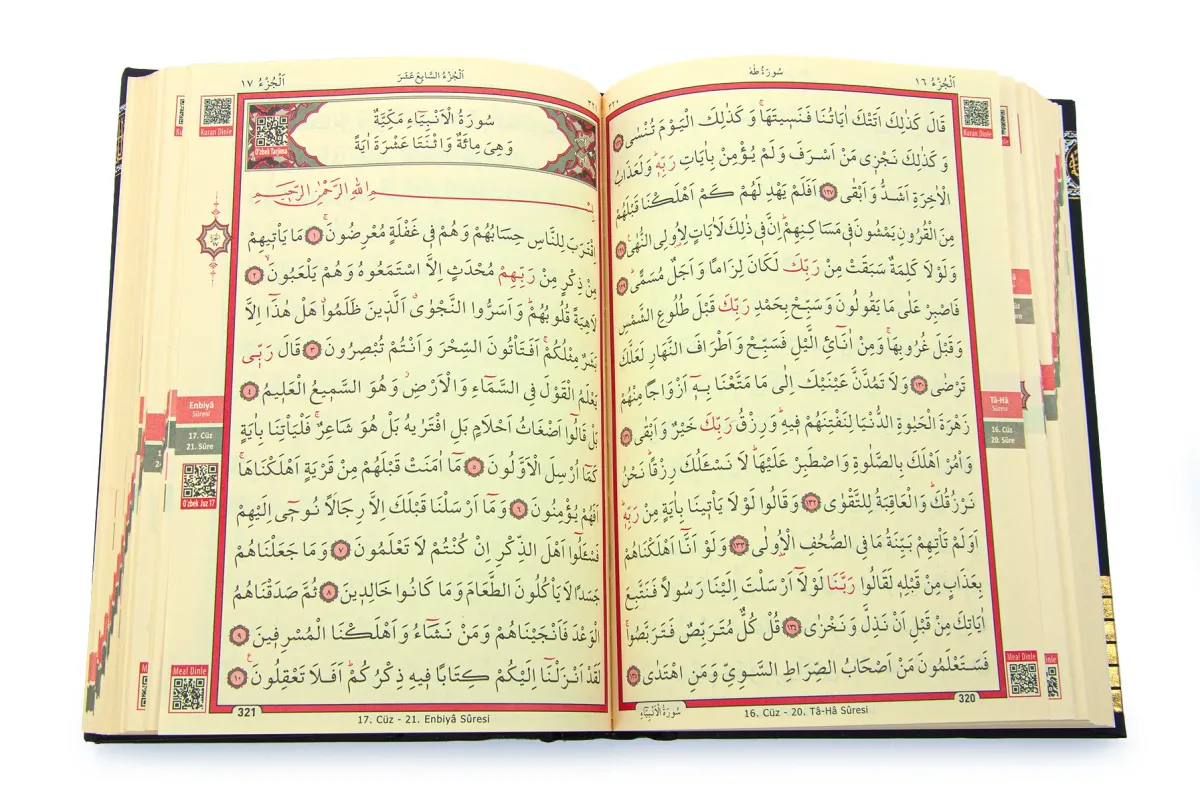 اَلْجُزْءُ ١٦
سُورَةُ طٰهٰ
Kuran Dinle
قَالَ كَذٰلِكَ اَتَتْكَ اٰيَاتُنَا فَنَسٖيتَهَاۚ وَكَذٰلِكَ الْيَوْمَ تُنْسٰى ﴿١٢٦﴾
وَكَذٰلِكَ نَجْزٖى مَنْ اَسْرَفَ وَلَمْ يُؤْمِنْ بِاٰيَاتِ رَبِّهٖؕ وَلَعَذَابُ
الْاٰخِرَةِ اَشَدُّ وَاَبْقٰى ﴿١٢٧﴾ اَفَلَمْ يَهْدِ لَهُمْ كَمْ اَهْلَكْنَا قَبْلَهُمْ
مِنَ الْقُرُونِ يَمْشُونَ فٖى مَسَاكِنِهِمْؕ اِنَّ فٖى ذٰلِكَ لَاٰيَاتٍ لِاُولِى النُّهٰى ﴿١٢٨﴾
وَلَوْلَا كَلِمَةٌ سَبَقَتْ مِنْ رَبِّكَ لَكَانَ لِزَامًا وَاَجَلٌ مُسَمًّى ﴿١٢٩﴾
فَاصْبِرْ عَلٰى مَا يَقُولُونَ وَسَبِّحْ بِحَمْدِ رَبِّكَ قَبْلَ طُلُوعِ الشَّمْسِ
وَقَبْلَ غُرُوبِهَاۚ وَمِنْ اٰنَآئِ الَّيْلِ فَسَبِّحْ وَاَطْرَافَ النَّهَارِ لَعَلَّكَ
تَرْضٰى ﴿١٣٠﴾ وَلَا تَمُدَّنَّ عَيْنَيْكَ اِلٰى مَا مَتَّعْنَا بِهٖٓ اَزْوَاجًا مِنْهُمْ
زَهْرَةَ الْحَيٰوةِ الدُّنْيَا لِنَفْتِنَهُمْ فٖيهِؕ وَرِزْقُ رَبِّكَ خَيْرٌ وَاَبْقٰى ﴿١٣١﴾
وَاْمُرْ اَهْلَكَ بِالصَّلٰوةِ وَاصْطَبِرْ عَلَيْهَاؕ لَا نَسْـَٔلُكَ رِزْقًاؕ نَحْنُ
نَرْزُقُكَؕ وَالْعَاقِبَةُ لِلتَّقْوٰى ﴿١٣٢﴾ وَقَالُوا لَوْلَا يَاْتٖينَا بِاٰيَةٍ مِنْ رَبِّهٖؕ
اَوَلَمْ تَاْتِهِمْ بَيِّنَةُ مَا فِى الصُّحُفِ الْاُولٰى ﴿١٣٣﴾ وَلَوْ اَنَّٓا اَهْلَكْنَاهُمْ
بِعَذَابٍ مِنْ قَبْلِهٖ لَقَالُوا رَبَّنَا لَوْلَٓا اَرْسَلْتَ اِلَيْنَا رَسُولًا فَنَتَّبِعَ
اٰيَاتِكَ مِنْ قَبْلِ اَنْ نَذِلَّ وَنَخْزٰى ﴿١٣٤﴾ قُلْ كُلٌّ مُتَرَبِّصٌ فَتَرَبَّصُواۚ
فَسَتَعْلَمُونَ مَنْ اَصْحَابُ الصِّرَاطِ السَّوِىِّ وَمَنِ اهْتَدٰى ﴿١٣٥﴾
Tâ-Hâ
Sûresi
16. Cüz
20. Sûre
Meal Dinle
320
16. Cüz - 20. Tâ-Hâ Sûresi
سُورَةُ الْاَنْبِيَٓاءِ
اَلْجُزْءُ السَّابِعَ عَشَرَ
اَلْجُزْءُ ١٧
Kuran Dinle
O'zbek Tarjima
سُورَةُ الْاَنْبِيَٓاءِ مَكِّيَّةٌ
وَهِىَ مِائَةٌ وَاثْنَتَا عَشْرَةَ اٰيَةً
بِسْمِ اللّٰهِ الرَّحْمٰنِ الرَّحٖيمِ
اِقْتَرَبَ لِلنَّاسِ حِسَابُهُمْ وَهُمْ فٖى غَفْلَةٍ مُعْرِضُونَۚ ﴿١﴾ مَا يَاْتٖيهِمْ
مِنْ ذِكْرٍ مِنْ رَبِّهِمْ مُحْدَثٍ اِلَّا اسْتَمَعُوهُ وَهُمْ يَلْعَبُونَۙ ﴿٢﴾
لَاهِيَةً قُلُوبُهُمْؕ وَاَسَرُّوا النَّجْوٰىۗ اَلَّذٖينَ ظَلَمُواۗ هَلْ هٰذَٓا اِلَّا
بَشَرٌ مِثْلُكُمْۚ اَفَتَاْتُونَ السِّحْرَ وَاَنْتُمْ تُبْصِرُونَ ﴿٣﴾ قَالَ رَبّٖى
يَعْلَمُ الْقَوْلَ فِى السَّمَٓاءِ وَالْاَرْضِؗ وَهُوَ السَّمٖيعُ الْعَلٖيمُ ﴿٤﴾
بَلْ قَالُٓوا اَضْغَاثُ اَحْلَامٍ بَلِ افْتَرٰيهُ بَلْ هُوَ شَاعِرٌۚ فَلْيَاْتِنَا بِاٰيَةٍ
كَمَٓا اُرْسِلَ الْاَوَّلُونَ ﴿٥﴾ مَٓا اٰمَنَتْ قَبْلَهُمْ مِنْ قَرْيَةٍ اَهْلَكْنَاهَاۚ
اَفَهُمْ يُؤْمِنُونَ ﴿٦﴾ وَمَٓا اَرْسَلْنَا قَبْلَكَ اِلَّا رِجَالًا نُوحٖٓى اِلَيْهِمْ
فَسْـَٔلُٓوا اَهْلَ الذِّكْرِ اِنْ كُنْتُمْ لَا تَعْلَمُونَ ﴿٧﴾ وَمَا جَعَلْنَاهُمْ
جَسَدًا لَا يَاْكُلُونَ الطَّعَامَ وَمَا كَانُوا خَالِدٖينَ ﴿٨﴾ ثُمَّ صَدَقْنَاهُمُ
الْوَعْدَ فَاَنْجَيْنَاهُمْ وَمَنْ نَشَٓاءُ وَاَهْلَكْنَا الْمُسْرِفٖينَ ﴿٩﴾
لَقَدْ اَنْزَلْنَٓا اِلَيْكُمْ كِتَابًا فٖيهِ ذِكْرُكُمْؕ اَفَلَا تَعْقِلُونَ۟ ﴿١٠﴾
Enbiyâ
Sûresi
17. Cüz
21. Sûre
O'zbek Juz 17
Meal Dinle
321
17. Cüz - 21. Enbiyâ Sûresi